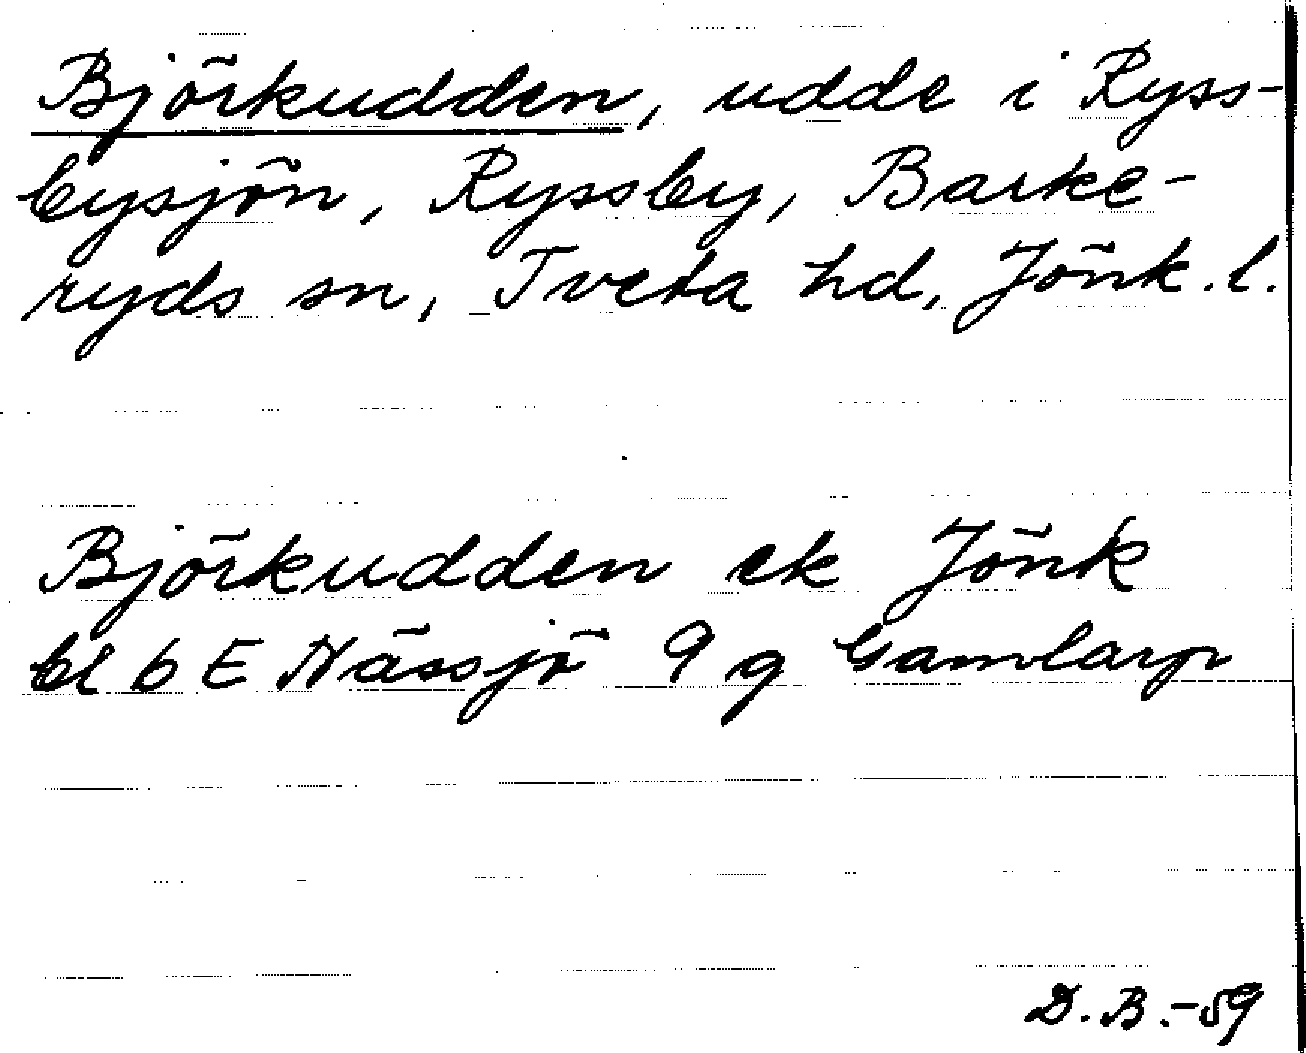 Björkudden, udde i Ryss-
bysjön, Ryssby, Barke-
ryds sn, Tveta hd, Jönk. l.
Björkudden ek Jönk
bl 6 E Nässjö 9 g Gamlarp
D.B.-59